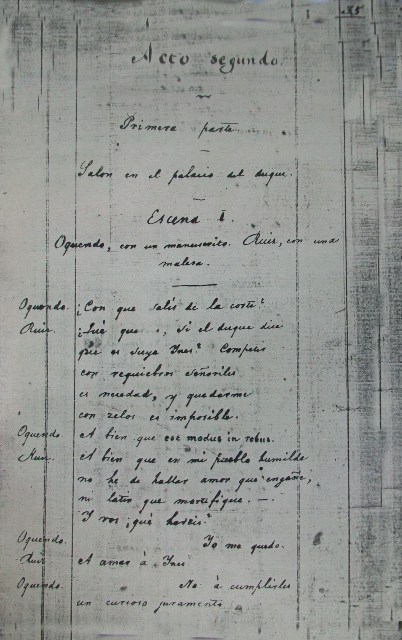 85
Acto segundo
Primera parte
Salon en el palacio del duque.
Escena I.
Oquendo, con un manuscrito. Ruiz, con una
maleta.
Oquendo. ¿Con que salís de la corte?
Ruiz. ¿Qué que , si el duque dice
que es suya Ines? Competir
con requiebros señoriles
es necedad, y quedarme
con zelos es imposible.
Oquendo. A bien que est modus in rebus.
Ruiz. A bien que en mi pueblo humilde
no he de hallar amor que engañe,
ni latin que mortifique. —
Y vos ¿qué haréis?
Oquendo. Yo me quedo.
Ruiz A amar á Ines
Oquendo. No á cumplirles
un curioso juramento